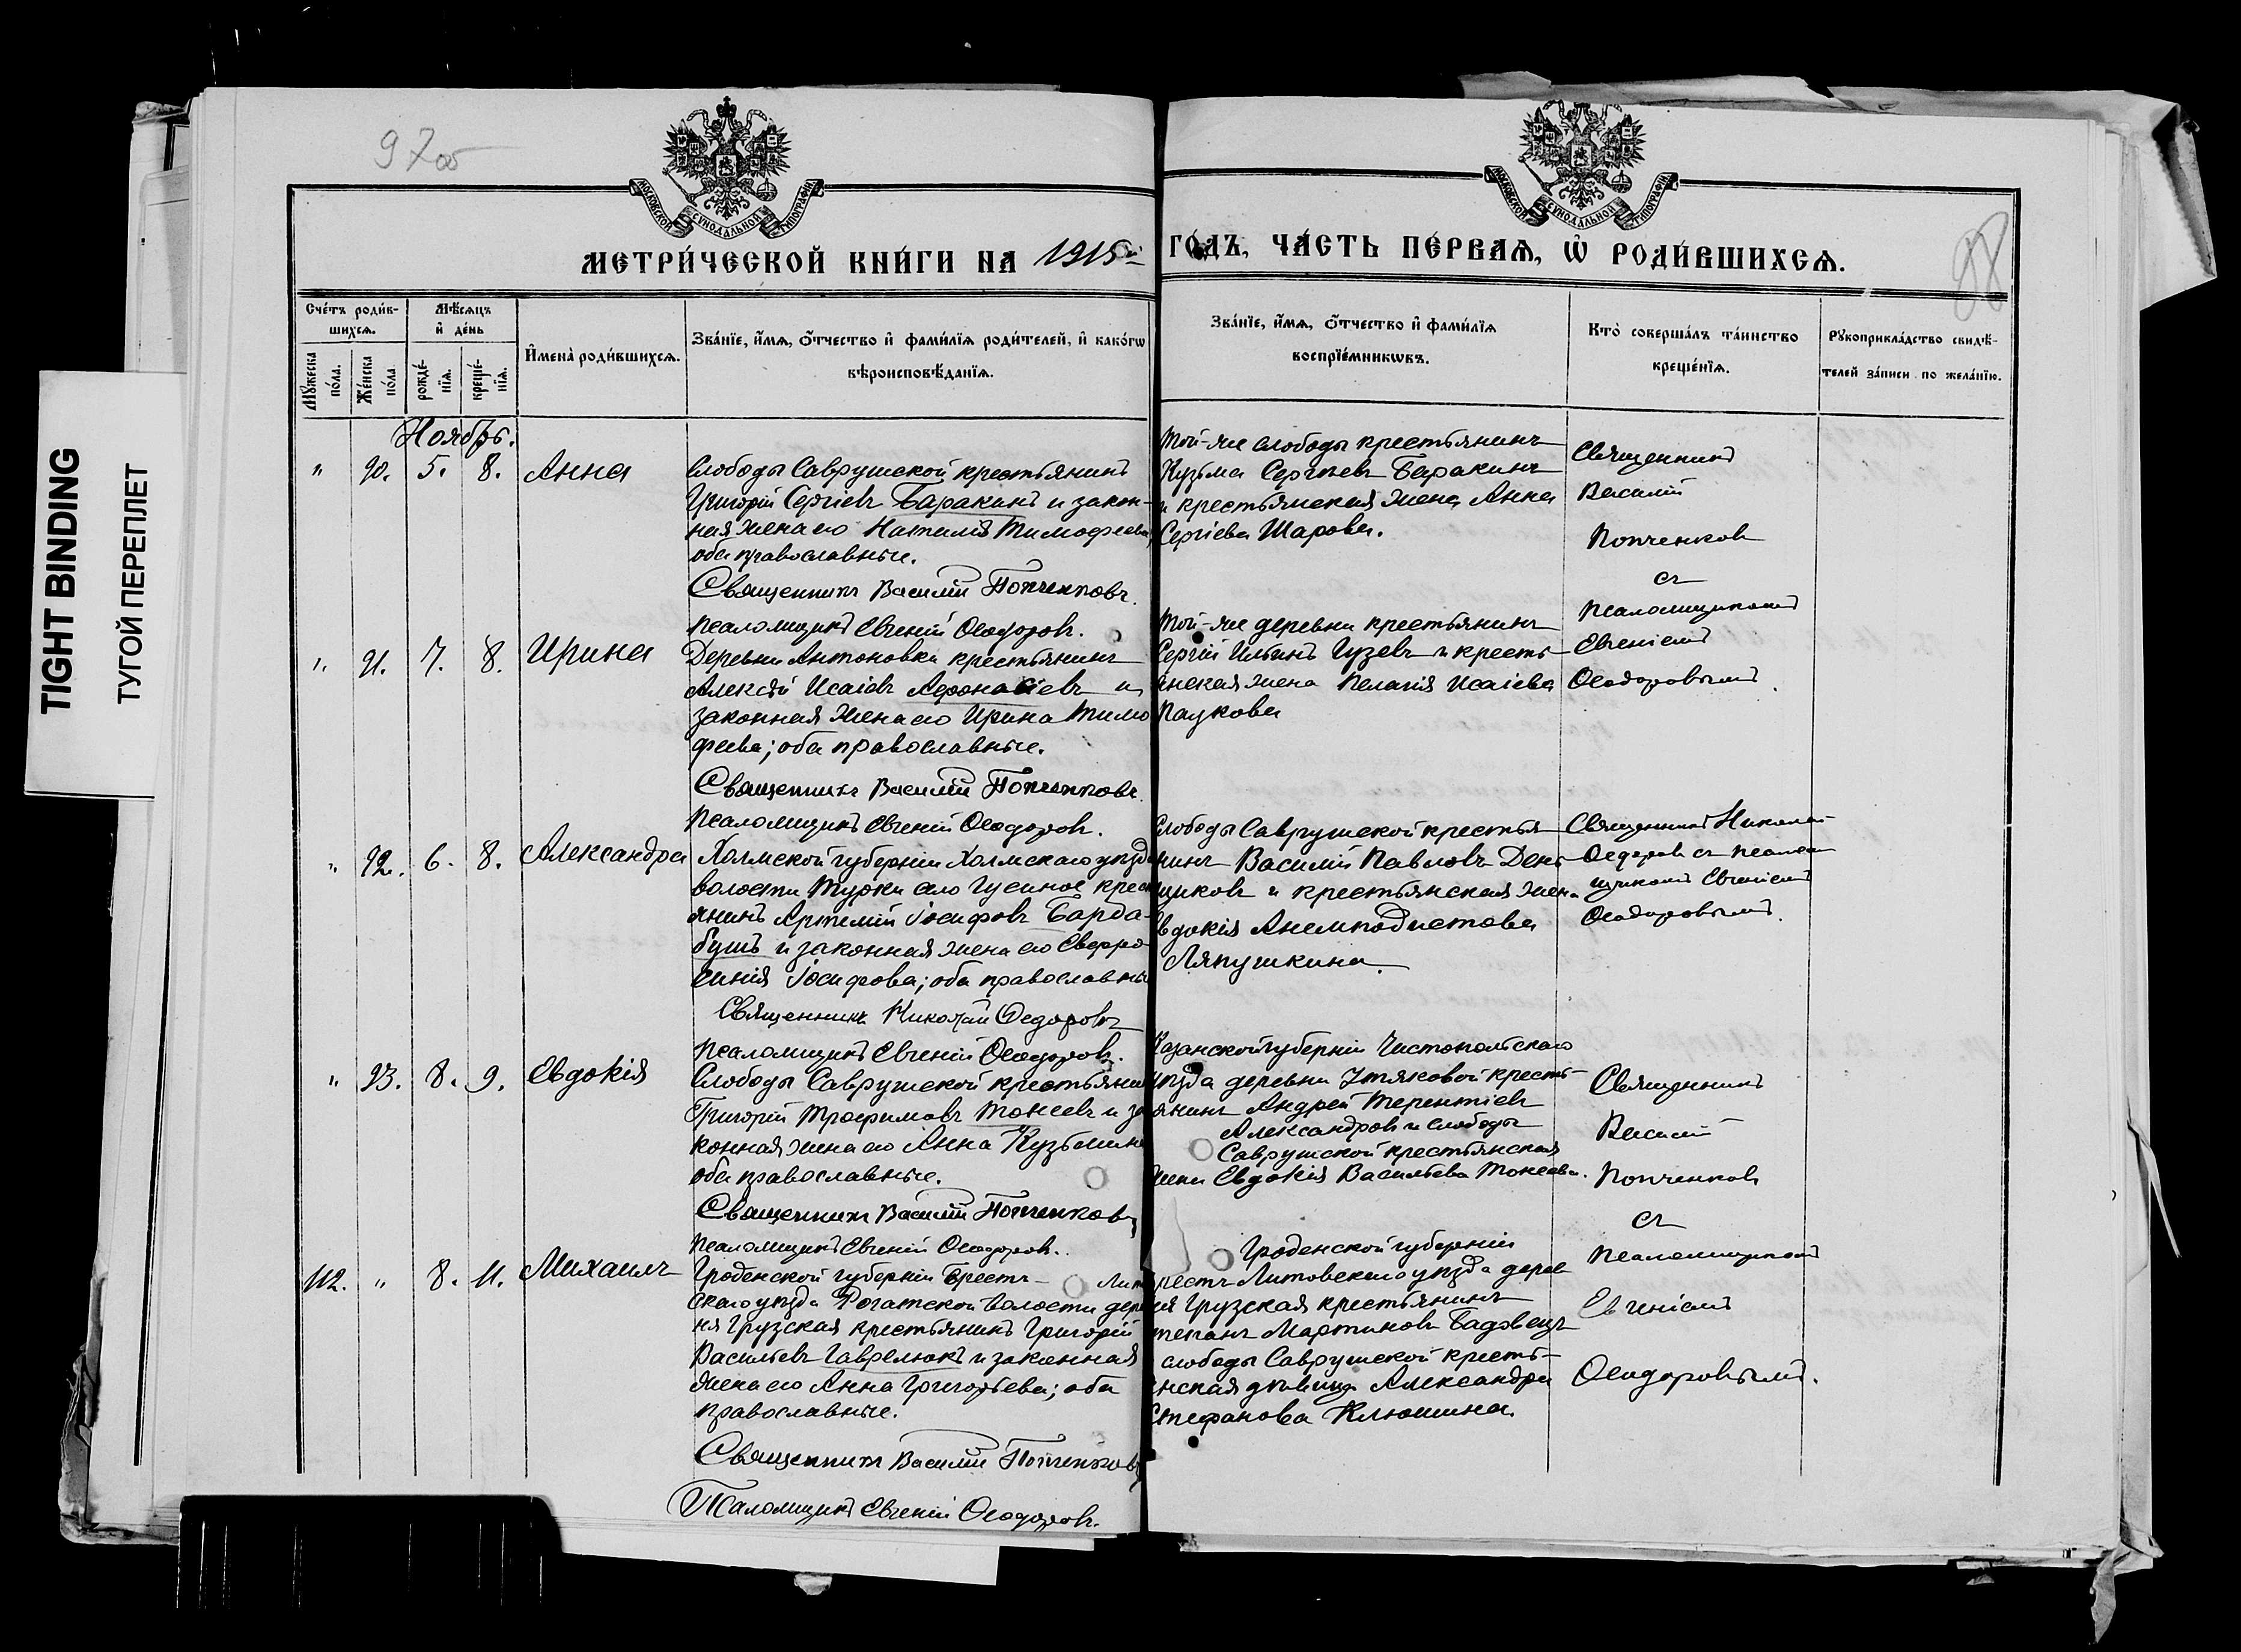 TIGHT BINDING
ТУГОЙ ПЕРЕПЛЕТ
97об
98
МОСКОВСКОЙ СѴНОДАЛЬНОЙ ТИПОГРАФІИ
МОСКОВСКОЙ СѴНОДАЛЬНОЙ ТИПОГРАФІИ
МЕТРИ́ЧЕСКОЙ КНИ́ГИ НА 1915й ГО́ДЪ, ЧА́СТЬ ПЕ́РВАѦ, Ѡ҆ РОДИ́ВШИХСѦ.
Сче́тъ роди́в-
шихсѧ.
Мꙋжеска по́ла.
Же́нска по́ла.
Мѣ́сѧцъ
и҆ де́нь
рожде́-
нїѧ.
креще́-
нїѧ.
И҆мена̀ роди́вшихсѧ.
Зва́нїе, и҆́мѧ, ѻ҆́тчество и҆ фами́лїѧ роди́телей, и҆ како́гѡ
вѣроисповѣ́данїѧ.
Зва́нїе, и҆́мѧ, ѻ҆́тчество и҆ фами́лїѧ
воспрїе́мникѡвъ.
Кто̀ соверша́лъ та́инство
креще́нїѧ.
Рꙋкоприкла́дство свидѣ́-
телей за́писи по жела́нїю.
Ноябрь.
" 90. 5. 8. Анна
Слободы Саврушской крестьянинъ
Григорій Сергіевъ Баракинъ и закон-
ная жена его Наталія Тимофеева,
оба православные.
Священникъ Василій Попченковъ.
Псаломщикъ Евгеній Ѳеодоровъ.
Той-же слободы крестьянинъ
Кузьма Сергѣевъ Баракинъ
и крестьянская жена Анна
Сергіева Шарова.
Священникъ
Василій
Попченковъ
съ
псаломщикомъ
Евгеніемъ
Ѳеодоровымъ.
" 91. 7. 8. Ирина
Деревни Антоновки крестьянинъ
Алексѣй Исаіевъ Афонасіевъ и
законная жена его Ирина Тимо
феева; оба православные.
Священникъ Василій Попченковъ.
Псаломщикъ Евгеній Ѳеодоровъ.
Той-же деревни крестьянинъ
Сергій Ильинъ Гузевъ и кресть-
янская жена Пелагія Исаіева
Паукова
" 92. 6. 8. Александра
Холмской губерніи Холмскаго уѣзда
волости Турки село Гусиное крест
янинъ Артемій Іосифовъ Барда-
бушъ и законная жена его Евфро-
синія Іосифова; оба православны
Священникъ Николай Ѳедоровъ
Псаломщикъ Евгеній Ѳеодоровъ.
Слободы Саврушской крестья-
нинъ Василій Павловъ День-
щиковъ и крестьянская жена
Евдокія Анемподистова
Ляпушкина.
Священникъ Николай
Ѳедоровъ съ псалом
щикомъ Евгеніемъ
Ѳеодоровымъ.
" 93. 8. 9. Евдокія
Слободы Саврушской крестьяни
Григорій Трофимовъ Тонеевъ и за
конная жена его Анна Кузьмина
оба православные.
Священникъ Василій Попченковъ
Псаломщикъ Евгеній Ѳеодоровъ.
Казанской губерніи Чистопольскаго
уѣзда деревни Утяковой кресть-
янинъ Андрей Терентіевъ
Александровъ и слободы
Саврушской крестьянская
жена Евдокія Васильева Тонеева.
Священникъ
Василій
Попченковъ
съ
псаломщикомъ
Евгеніемъ
Ѳеодоровымъ.
112. " 8. 11. Михаилъ
Гроденской губерніи Брестъ- Лит
скаго уѣзда Рогатской волости дере
ня Грузская крестьянинъ Григорій
Васильевъ Гаврелюкъ и законная
жена его Анна Григорьева; оба
православные.
Священникъ Василій Попченковъ
Псаломщикъ Евгеній Ѳеодоровъ.
Гроденской губерніи
Брестъ Литовскаго уѣзда дерев
ня Грузская крестьянинъ
Степанъ Мартиновъ Бадовецъ
слободы Саврушской кресть-
янская дѣвица Александра
Стефанова Клюшина.